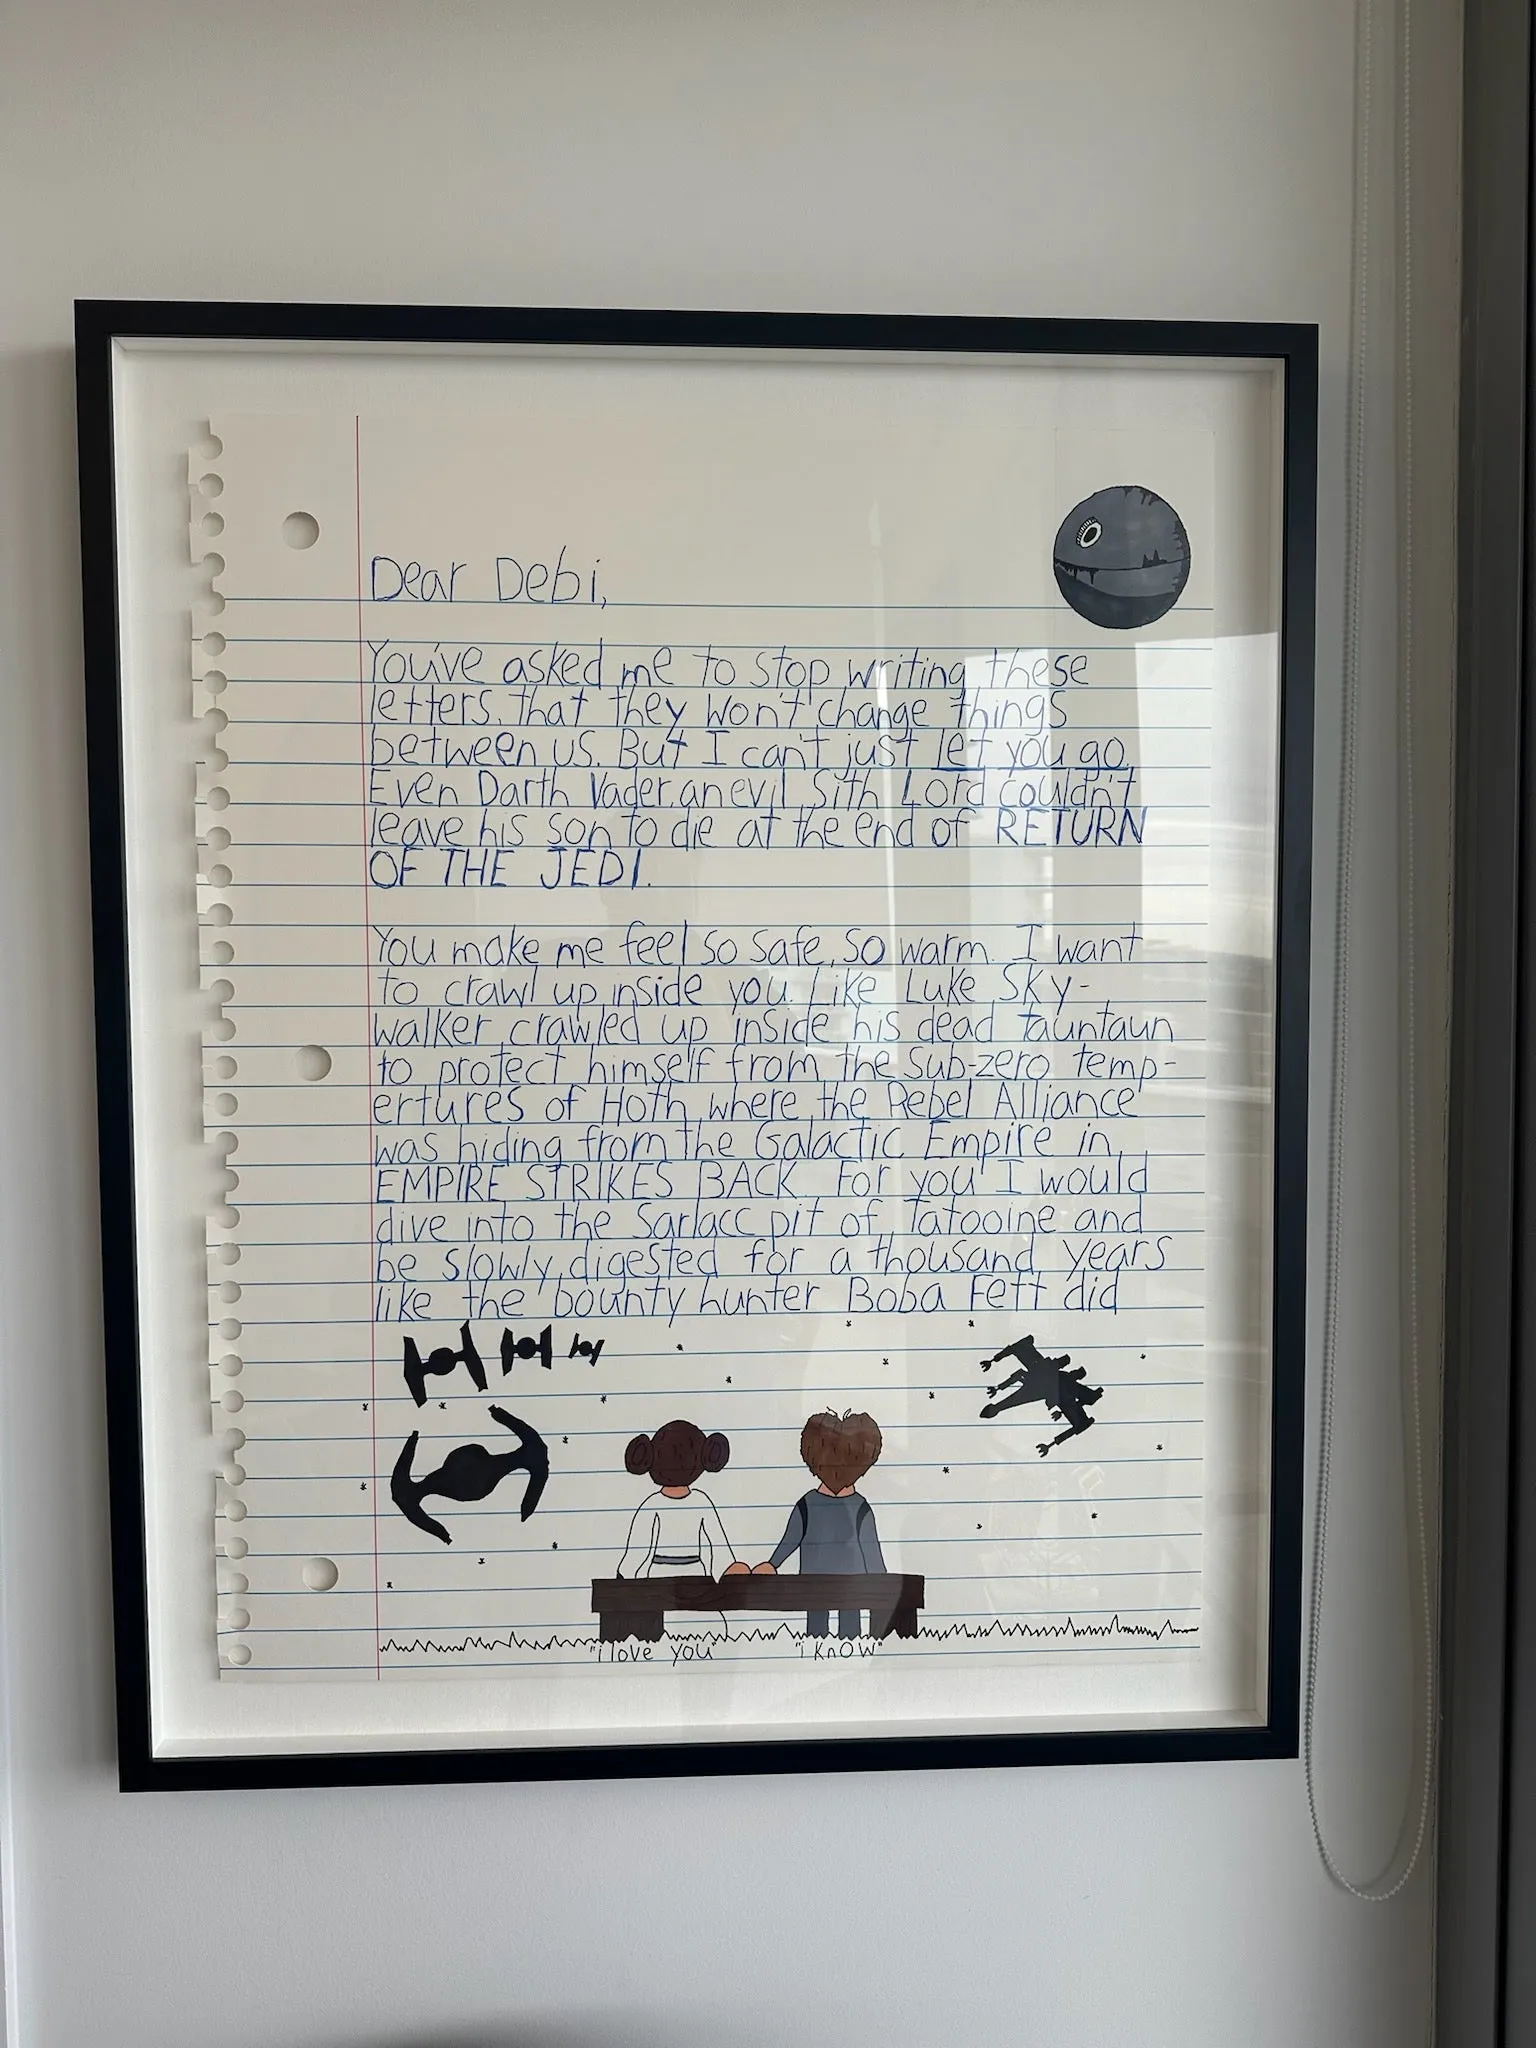 Dear Debi,
You've asked me to stop writing these
letters, that they won't change things
between us. But I can't just let you go.
Even Darth Vader, an evil Sith Lord couldn't
leave his son to die at the end of RETURN
OF THE JEDI.
You make me feel so safe, so warm. I want
to crawl up inside you. Like Luke Sky-
walker crawled up inside his dead tauntaun
to protect himself from the sub-zero temp-
ertures of Hoth where the Rebel Alliance
was hiding from the Galactic Empire in
EMPIRE STRIKES BACK. For you I would
dive into the Sarlacc pit of Tatooine and
be slowly digested for a thousand years
like the bounty hunter Boba Fett did
"i love you" "i know"